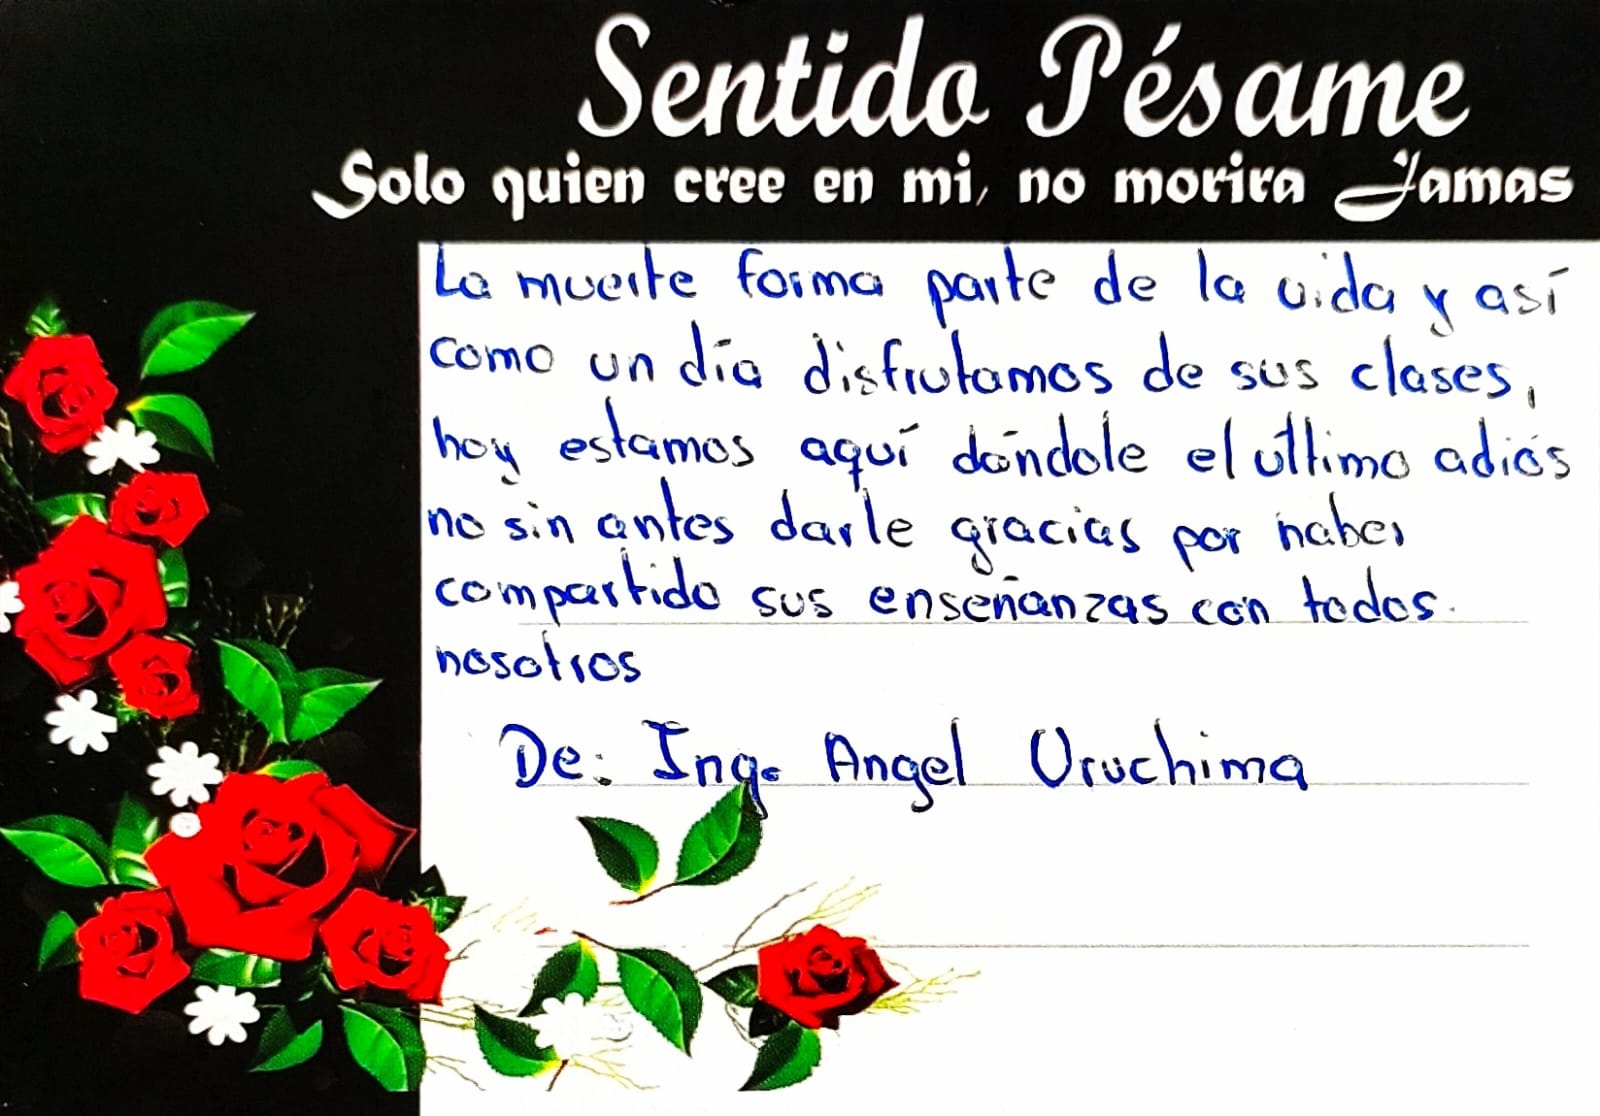 Sentido Pésame
Solo quien cree en mi, no morira Jamas
La muerte forma parte de la vida y así
como un día disfrutamos de sus clases,
hoy estamos aquí dándole el último adiós
no sin antes darle gracias por haber
compartido sus enseñanzas con todos
nosotros
De: Ing. Angel Uruchima